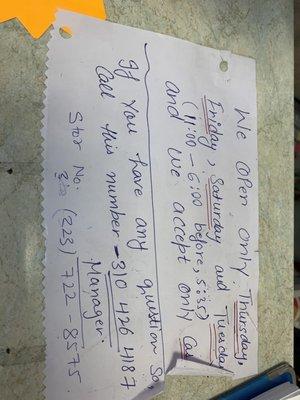 We open only Thursday,
Friday, Saturday and Tuesday
(11:00 - 6:00 before, 5:35)
and we accept only
If You have any question so,
Call this number - 310 426 4187
Manager.
Stor No. (223) 722 - 8575.